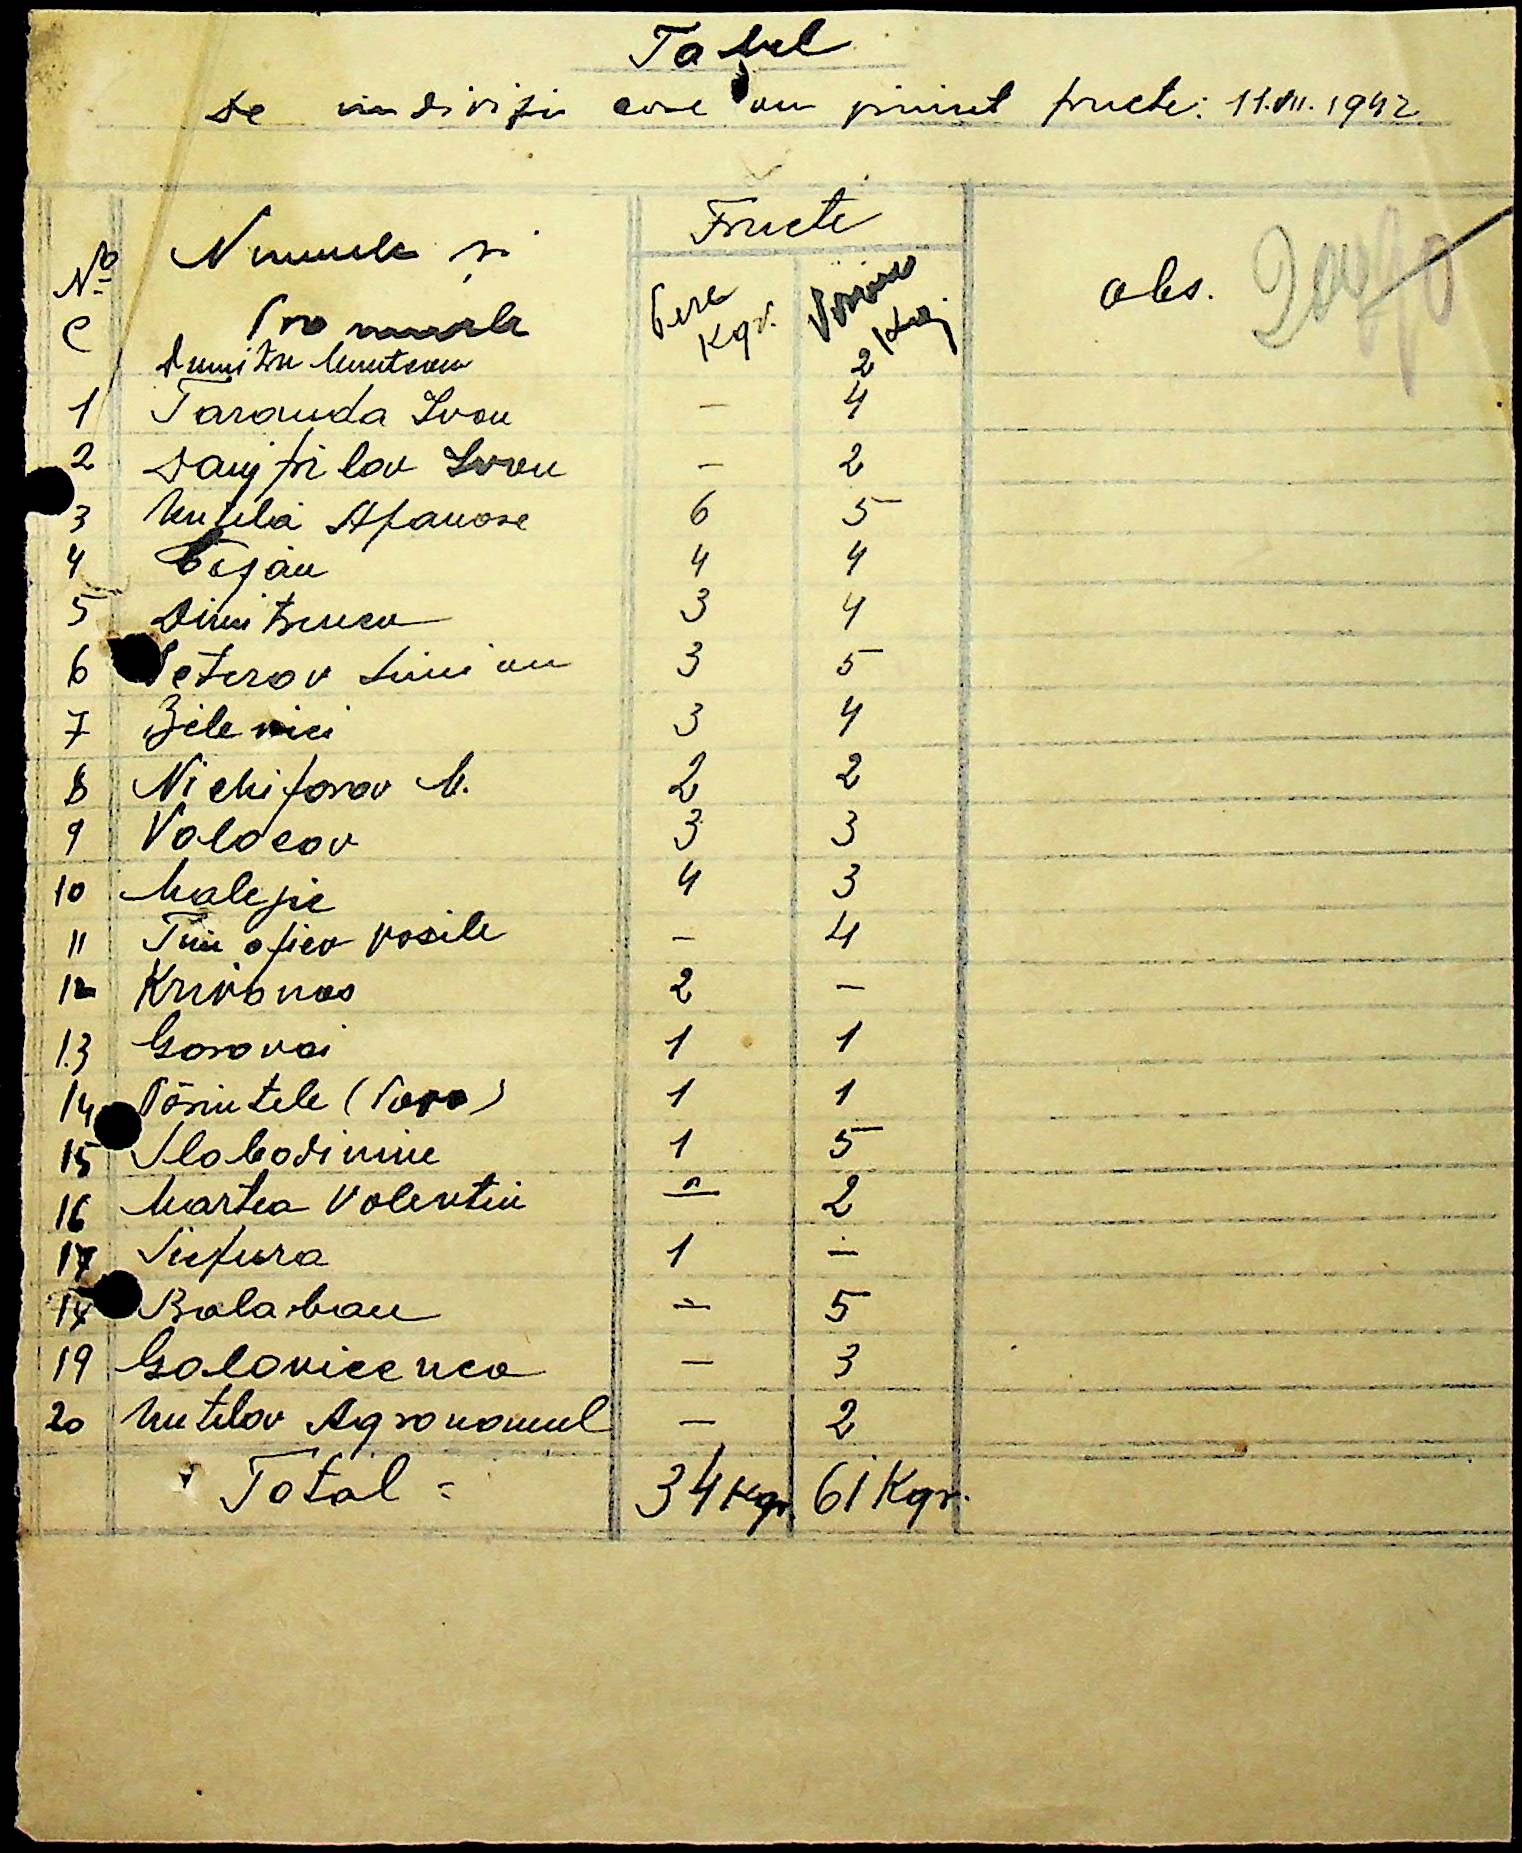 Tabel
de indivizii care au primit fructe: 11.VII.1942
Nº C Numele și Pronumele Fructe obs.
Pere Kgr. Vișine Kgr.
Dumitru Munteanu 2
1 Taranda Ivan — 4
2 Ivan — 2
3 Afanase 6 5
4 4 4
5 Dimitrenco 3 4
6 Peterov Simion 3 5
7 Zilevici 3 4
8 Nichiforov M. 2 2
9 Volocov 3 3
10 4 3
11 Timofiev Vasile — 4
12 Krivonos 2 —
13 Gorovoi 1 1
14 Părintele (Popa) 1 1
15 1 5
16 Martea Valentin — 2
17 1 —
Balaban — 5
19 Golovicenco — 3
20 Mutilov Agronomul — 2
Total = 34 Kgr. 61 Kgr.